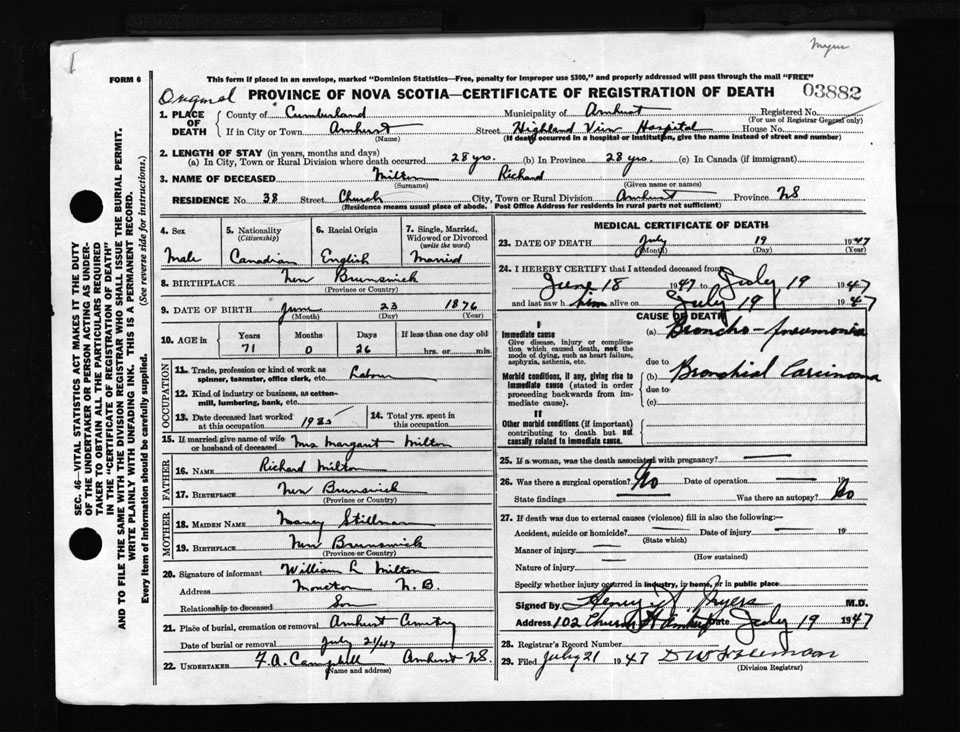 Myers
1
FORM 6
This form if placed in an envelope, marked "Dominion Statistics—Free, penalty for improper use $300," and properly addressed will pass through the mail "FREE"
Original PROVINCE OF NOVA SCOTIA—CERTIFICATE OF REGISTRATION OF DEATH 03882
1. PLACE OF DEATH County of Cumberland Municipality of Amherst Registered No.
(For use of Registrar General only)
If in City or Town Amherst Street Highland View Hospital House No.
(Name) (If death occurred in a hospital or institution, give the name instead of street and number)
2. LENGTH OF STAY (in years, months and days)
(a) In City, Town or Rural Division where death occurred 28 yrs. (b) In Province 28 yrs. (c) In Canada (if immigrant)
3. NAME OF DECEASED Milton Richard
(Surname) (Given name or names)
RESIDENCE No. 38 Street Church City, Town or Rural Division Amherst Province NS
(Residence means usual place of abode. Post Office Address for residents in rural parts not sufficient)
4. Sex 5. Nationality (Citizenship) 6. Racial Origin 7. Single, Married, Widowed or Divorced (write the word)
Male Canadian English Married
8. BIRTHPLACE New Brunswick
(Province or Country)
9. DATE OF BIRTH June 23 1876
(Month) (Day) (Year)
10. AGE in Years Months Days If less than one day old
71 0 26 hrs. or min.
OCCUPATION
11. Trade, profession or kind of work as spinner, teamster, office clerk, etc. Labour
12. Kind of industry or business, as cotton-mill, lumbering, bank, etc.
13. Date deceased last worked at this occupation 1935 14. Total yrs. spent in this occupation
15. If married give name of wife or husband of deceased Mrs Margaret Milton
FATHER
16. NAME Richard Milton
17. BIRTHPLACE New Brunswick
(Province or Country)
MOTHER
18. MAIDEN NAME Nancy Stillman
19. BIRTHPLACE New Brunswick
(Province or Country)
20. Signature of informant William L Milton
Address Moncton N.B.
Relationship to deceased Son
21. Place of burial, cremation or removal Amherst Cemetry
Date of burial or removal July 21/47
22. UNDERTAKER F.A. Campbell Amherst NS
(Name and address)
MEDICAL CERTIFICATE OF DEATH
23. DATE OF DEATH July 19 1947
(Month) (Day) (Year)
24. I HEREBY CERTIFY that I attended deceased from
June 18 1947 to July 19 1947
and last saw h him alive on July 19 1947
CAUSE OF DEATH
I
Immediate cause (a) Broncho-pneumonia
Give disease, injury or complication which caused death, not the mode of dying, such as heart failure, asphyxia, asthenia, etc.
due to
Morbid conditions, if any, giving rise to immediate cause (stated in order proceeding backwards from immediate cause). (b) Bronchial Carcinoma
due to
(c)
II
Other morbid conditions (if important) contributing to death but not causally related to immediate cause.
25. If a woman, was the death associated with pregnancy?
26. Was there a surgical operation? No Date of operation 19
State findings Was there an autopsy? No
27. If death was due to external causes (violence) fill in also the following:—
Accident, suicide or homicide? Date of injury 19
(State which)
Manner of injury
(How sustained)
Nature of injury
Specify whether injury occurred in industry, in home, or in public place
Signed by Henry J Myers M.D.
Address 102 Church St Amherst Date July 19 1947
28. Registrar's Record Number
29. Filed July 21 1947
(Division Registrar)
SEC. 46—VITAL STATISTICS ACT MAKES IT THE DUTY
OF THE UNDERTAKER OR PERSON ACTING AS UNDER-
TAKER TO OBTAIN ALL THE PARTICULARS REQUIRED
IN THE "CERTIFICATE OF REGISTRATION OF DEATH"
AND TO FILE THE SAME WITH THE DIVISION REGISTRAR WHO SHALL ISSUE THE BURIAL PERMIT.
WRITE PLAINLY WITH UNFADING INK. THIS IS A PERMANENT RECORD.
Every item of Information should be carefully supplied. (See reverse side for instructions.)